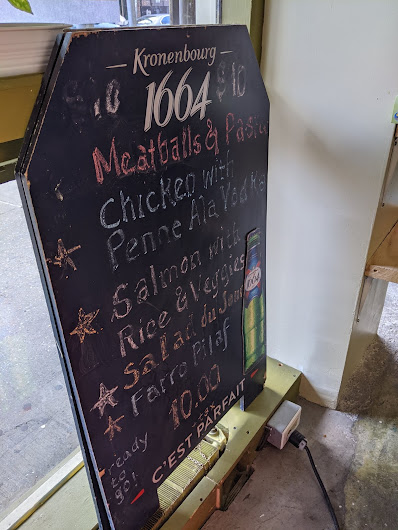 Kronenbourg
$10 1664 $10
Meatballs & Pasta
Chicken with
Penne Ala Vodka
Salmon with
Rice & Veggies
Salad du Jour
Farro Pilaf
10.00
ready
to
go!
C'EST PARFAIT